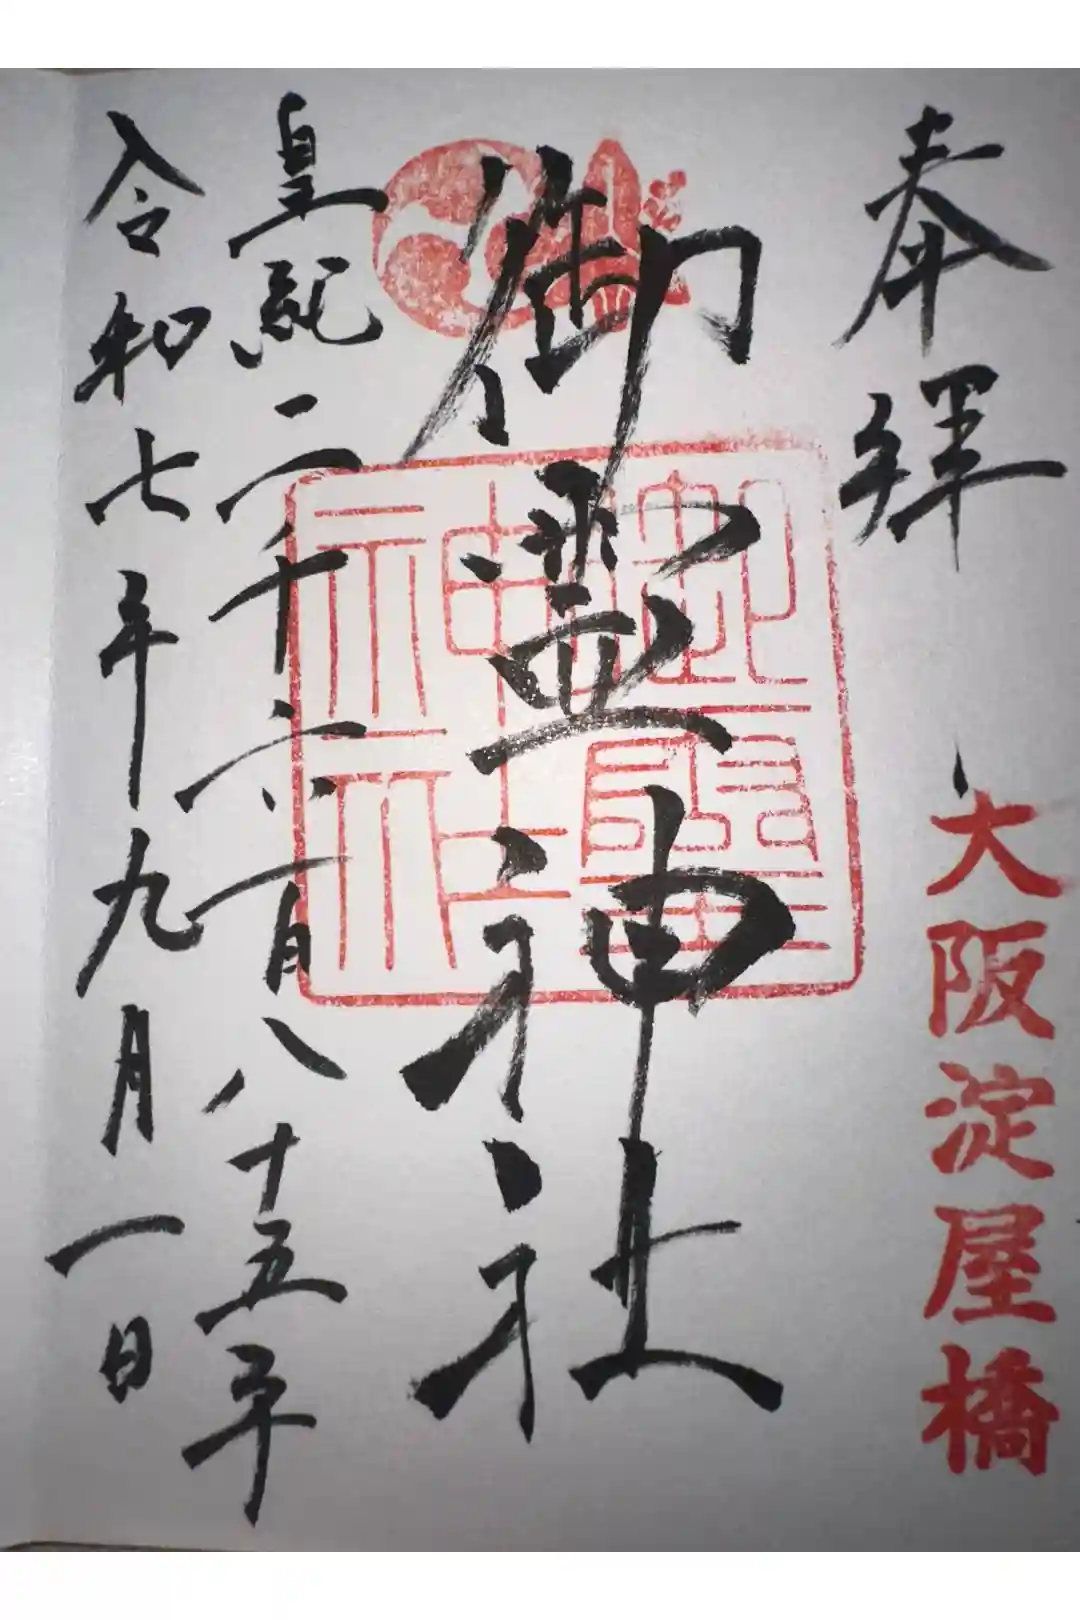 奉拝
大阪淀屋橋
御霊神社
御霊神社
皇紀二千六百八十五年
令和七年九月一日